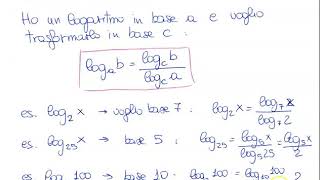 Ho un logaritmo in base a e voglio
trasformarlo in base c :
log_a b = log_c b / log_c a
es. log_2 x → voglio base 7 : log_2 x = log_7 x / log_7 2
es. log_25 x → base 5 : log_25 x = log_5 x / log_5 25 = log_5 x / 2
es. log 100 → base 10 . log 100 100 2